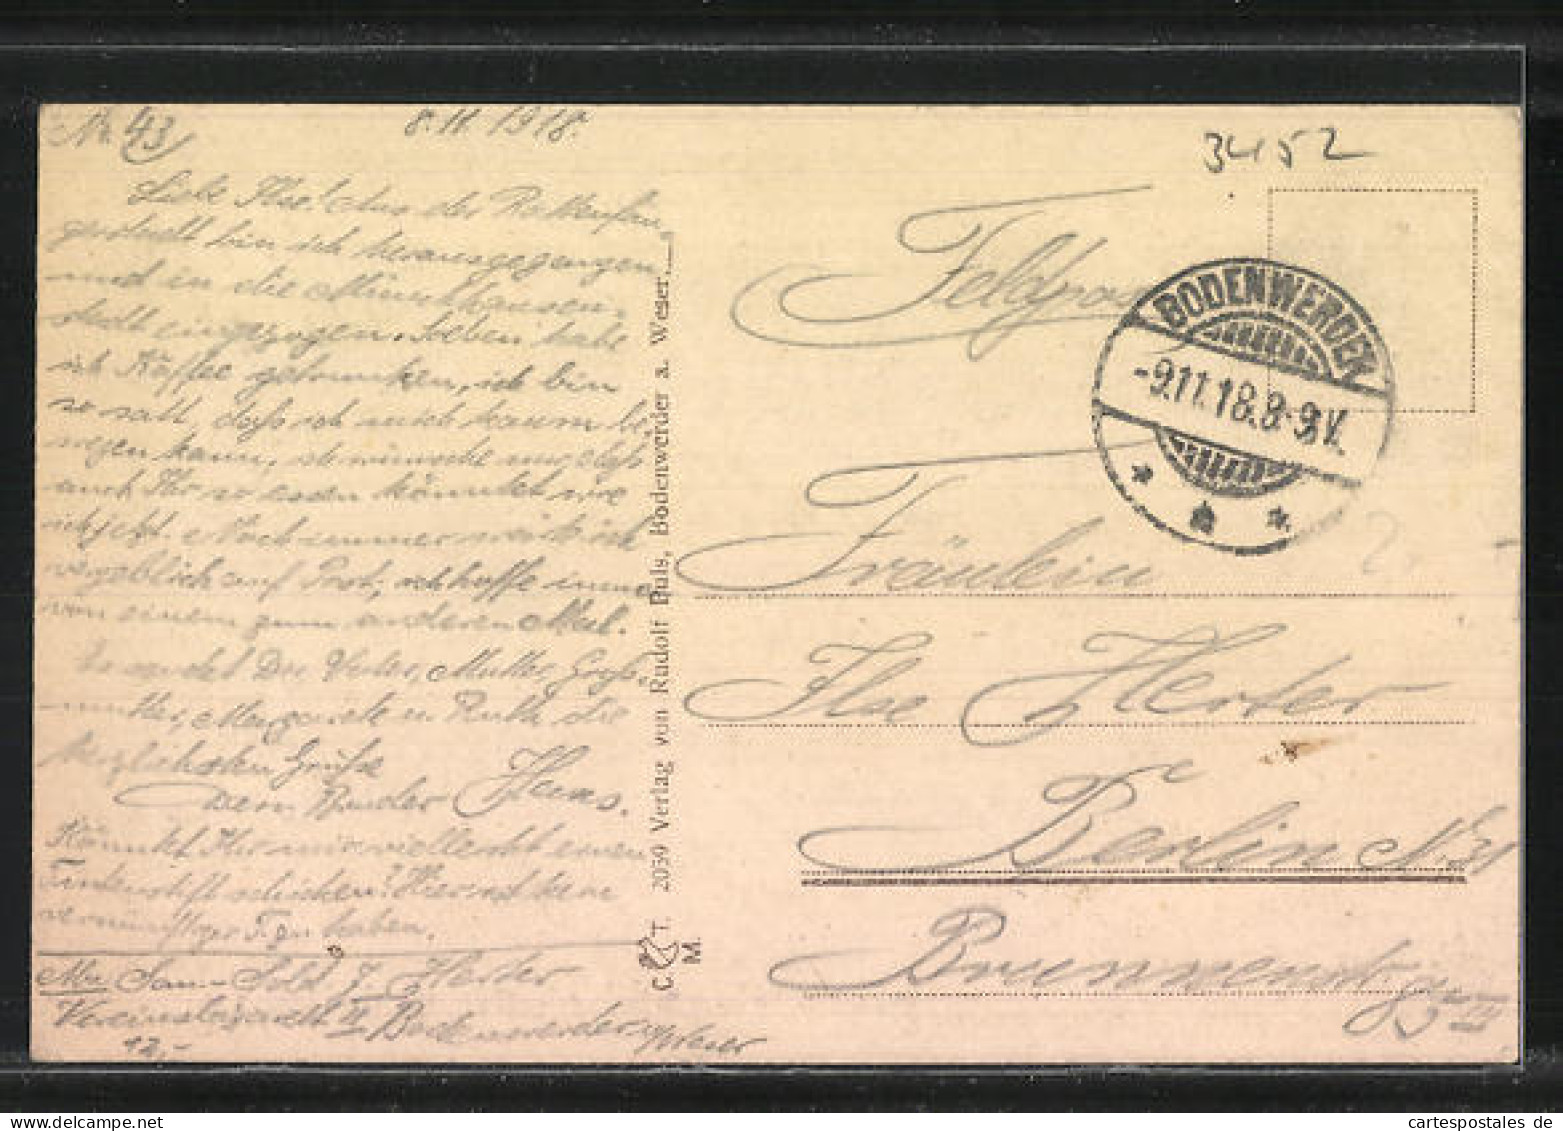 Nr. 43
8.11.1918.
Liebe Ilse! Aus der Rattenfän-
gerstadt bin ich herausgegangen
und in die Münchhausen-
stadt eingezogen. Soeben habe
ich Kaffee getrunken, ich bin
so satt, daß ich mich kaum be-
wegen kann, ich wünsche nur, daß
auch Ihr so essen könntet wie
ich jetzt. Noch immer warte ich
vergeblich auf Post, ich hoffe immer
von einem zum anderen Mal.
Es sendet Dir, Vater, Mutter, Groß-
mutter, Margarete u. Ruth die
herzlichsten Grüße
Dein Bruder Hans.
Könntet Ihr mir vielleicht einen
Tintenstift schicken? Hier ist kein
vernünftiger zu haben.
Abs. San.-Sold. J. Herter
Vereinslazarett II Bodenwerder a/Weser
12,-
C. T. 2059 Verlag von Rudolf Puls, Bodenwerder a. Weser.
M.
3452
Feldpost
BODENWERDER
-9.11.18.8-9V.
Fräulein
Ilse Herter
Berlin N. 31
Brunnenstr. 95 III
cartespostales de